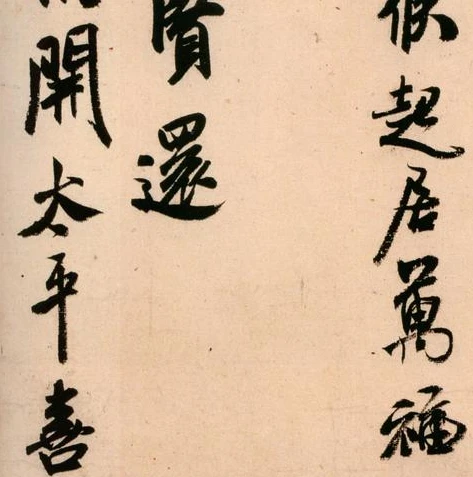 候起居萬福
賢還
開太平喜